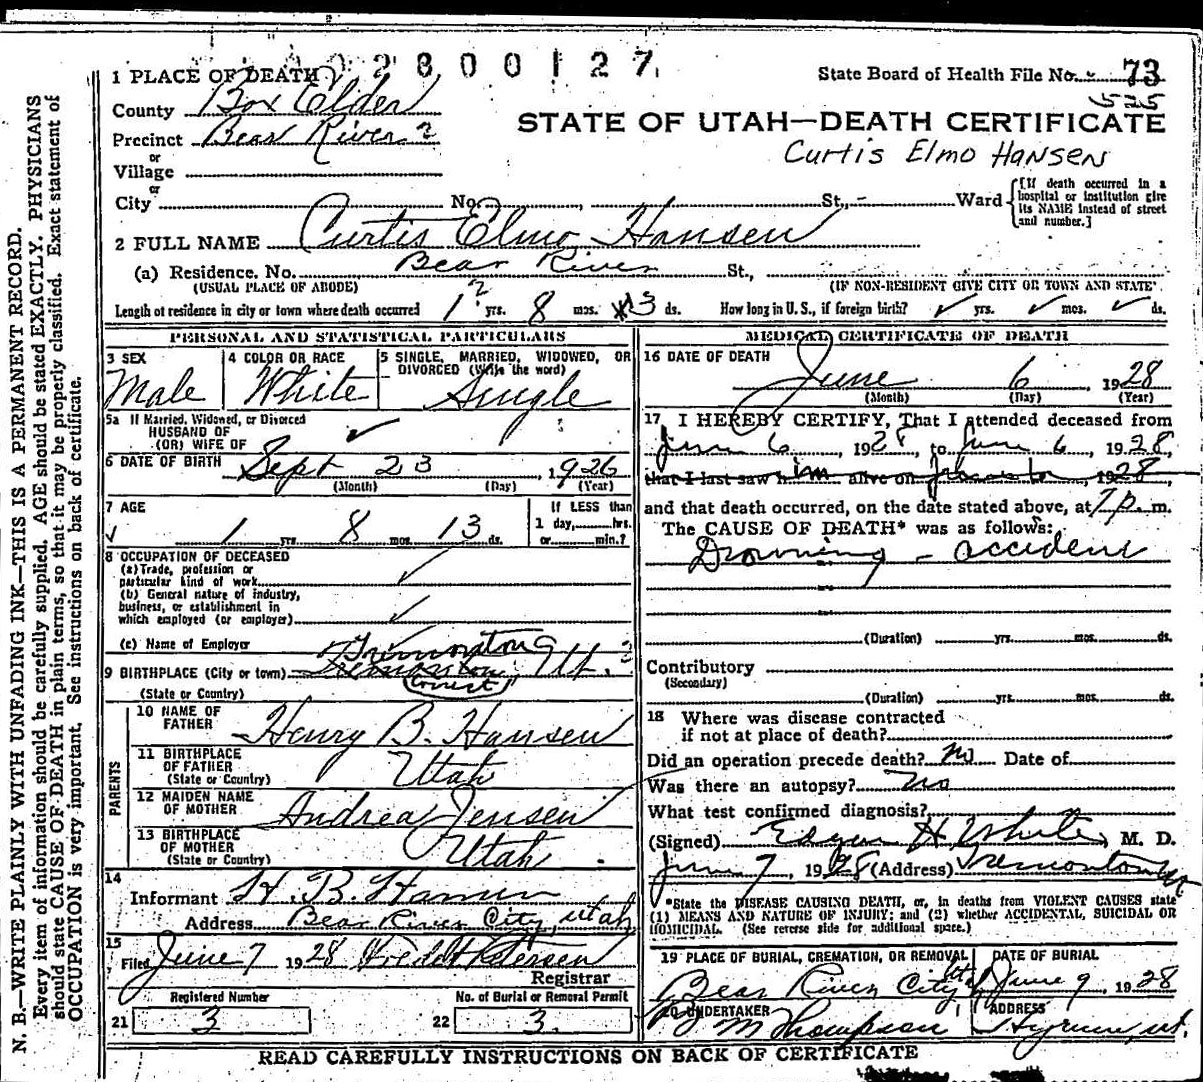 2800127
1 PLACE OF DEATH
State Board of Health File No. 73
525
County Box Elder
Precinct Bear River
STATE OF UTAH—DEATH CERTIFICATE
Curtis Elmo Hansen
or
Village
or
City No. St., Ward
[If death occurred in a hospital or institution give its NAME instead of street and number.]
2 FULL NAME Curtis Elmo Hansen
(a) Residence. No. Bear River St.,
(USUAL PLACE OF ABODE) (IF NON-RESIDENT GIVE CITY OR TOWN AND STATE)
Length of residence in city or town where death occurred 1 yrs. 8 mos. 13 ds. How long in U. S., if foreign birth? yrs. mos. ds.
PERSONAL AND STATISTICAL PARTICULARS
3 SEX
Male
4 COLOR OR RACE
White
5 SINGLE, MARRIED, WIDOWED, OR
DIVORCED (Write the word)
Single
5a If Married, Widowed, or Divorced
HUSBAND OF
(OR) WIFE OF
6 DATE OF BIRTH Sept 23, 1926
(Month) (Day) (Year)
7 AGE
1 yrs. 8 mos. 13 ds.
If LESS than
1 day,......hrs.
or......min.?
8 OCCUPATION OF DECEASED
(a) Trade, profession or
particular kind of work
(b) General nature of industry,
business, or establishment in
which employed (or employer)
(c) Name of Employer
Tremonton
9 BIRTHPLACE (City or town) Tremonton, Ut.
(State or Country) Correct
PARENTS
10 NAME OF
FATHER Henry B. Hansen
11 BIRTHPLACE
OF FATHER Utah
(State or Country)
12 MAIDEN NAME
OF MOTHER Andrea Jensen
13 BIRTHPLACE
OF MOTHER Utah
(State or Country)
14
Informant H. B. Hansen
Address Bear River City, Utah
15
Filed June 7 1928
Registrar
Registered Number
21 3
No. of Burial or Removal Permit
22 3.
MEDICAL CERTIFICATE OF DEATH
16 DATE OF DEATH
June 6, 1928
(Month) (Day) (Year)
17 I HEREBY CERTIFY, That I attended deceased from
June 6, 1928, to June 6, 1928,
that I last saw him alive on , 1928
and that death occurred, on the date stated above, at 7 p. m.
The CAUSE OF DEATH* was as follows:
Drowning - accident
(Duration) yrs. mos. ds.
Contributory
(Secondary)
(Duration) yrs. mos. ds.
18 Where was disease contracted
if not at place of death?
Did an operation precede death? No Date of
Was there an autopsy? No
What test confirmed diagnosis?
(Signed) H White, M. D.
June 7, 1928 (Address) Tremonton
*State the DISEASE CAUSING DEATH, or, in deaths from VIOLENT CAUSES state
(1) MEANS AND NATURE OF INJURY; and (2) whether ACCIDENTAL, SUICIDAL OR
HOMICIDAL. (See reverse side for additional space.)
19 PLACE OF BURIAL, CREMATION, OR REMOVAL
Bear River City
DATE OF BURIAL
June 9, 1928
20 UNDERTAKER
M Thompson
ADDRESS
Hyrum, Ut.
READ CAREFULLY INSTRUCTIONS ON BACK OF CERTIFICATE
N. B.—WRITE PLAINLY WITH UNFADING INK—THIS IS A PERMANENT RECORD.
Every item of information should be carefully supplied. AGE should be stated EXACTLY. PHYSICIANS
should state CAUSE OF DEATH in plain terms, so that it may be properly classified. Exact statement of
OCCUPATION is very important. See instructions on back of certificate.